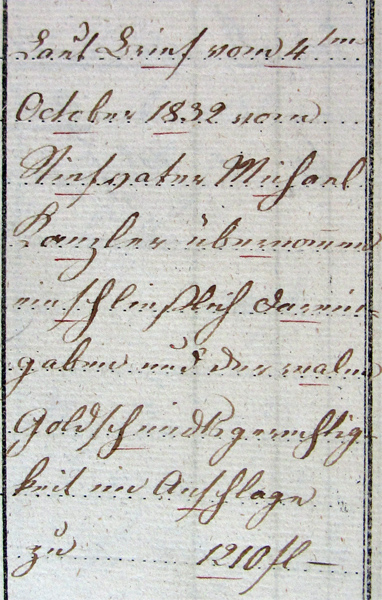 Laut Brief vom 4ten
October 1832 vom
Stiefvater Michael
Kanzler übernommen
einschließlich darein-
gaben und der realen
Goldschmidtsgerechtig-
keit im Anschlage
zu 1210 fl —